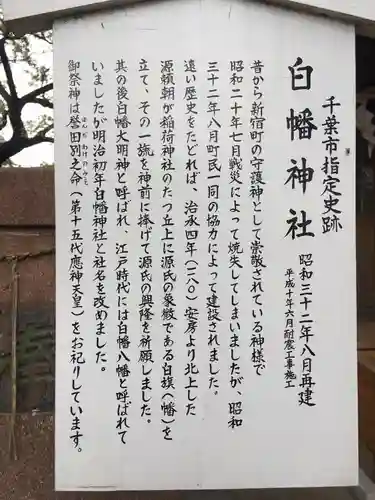 千葉市指定史跡
白幡神社
昭和三十二年八月再建
平成十年六月耐震工事施工
昔から新宿町の守護神として崇敬されている神様で
昭和二十年七月戦災によって焼失してしまいましたが、昭和
三十二年八月町民一同の協力によって建設されました。
遠い歴史をたどれば、治承四年(一一八〇)安房より北上した
源頼朝が稲荷神社のたつ丘上に源氏の象徴である白旗(幡)を
立て、その一旒を神前に捧げて源氏の興隆を祈願しました。
其の後白幡大明神と呼ばれ、江戸時代には白幡八幡と呼ばれて
いましたが明治初年白幡神社と社名を改めました。
御祭神は誉田別之命(第十五代應神天皇)をお祀りしています。
ほんだわけのみこと